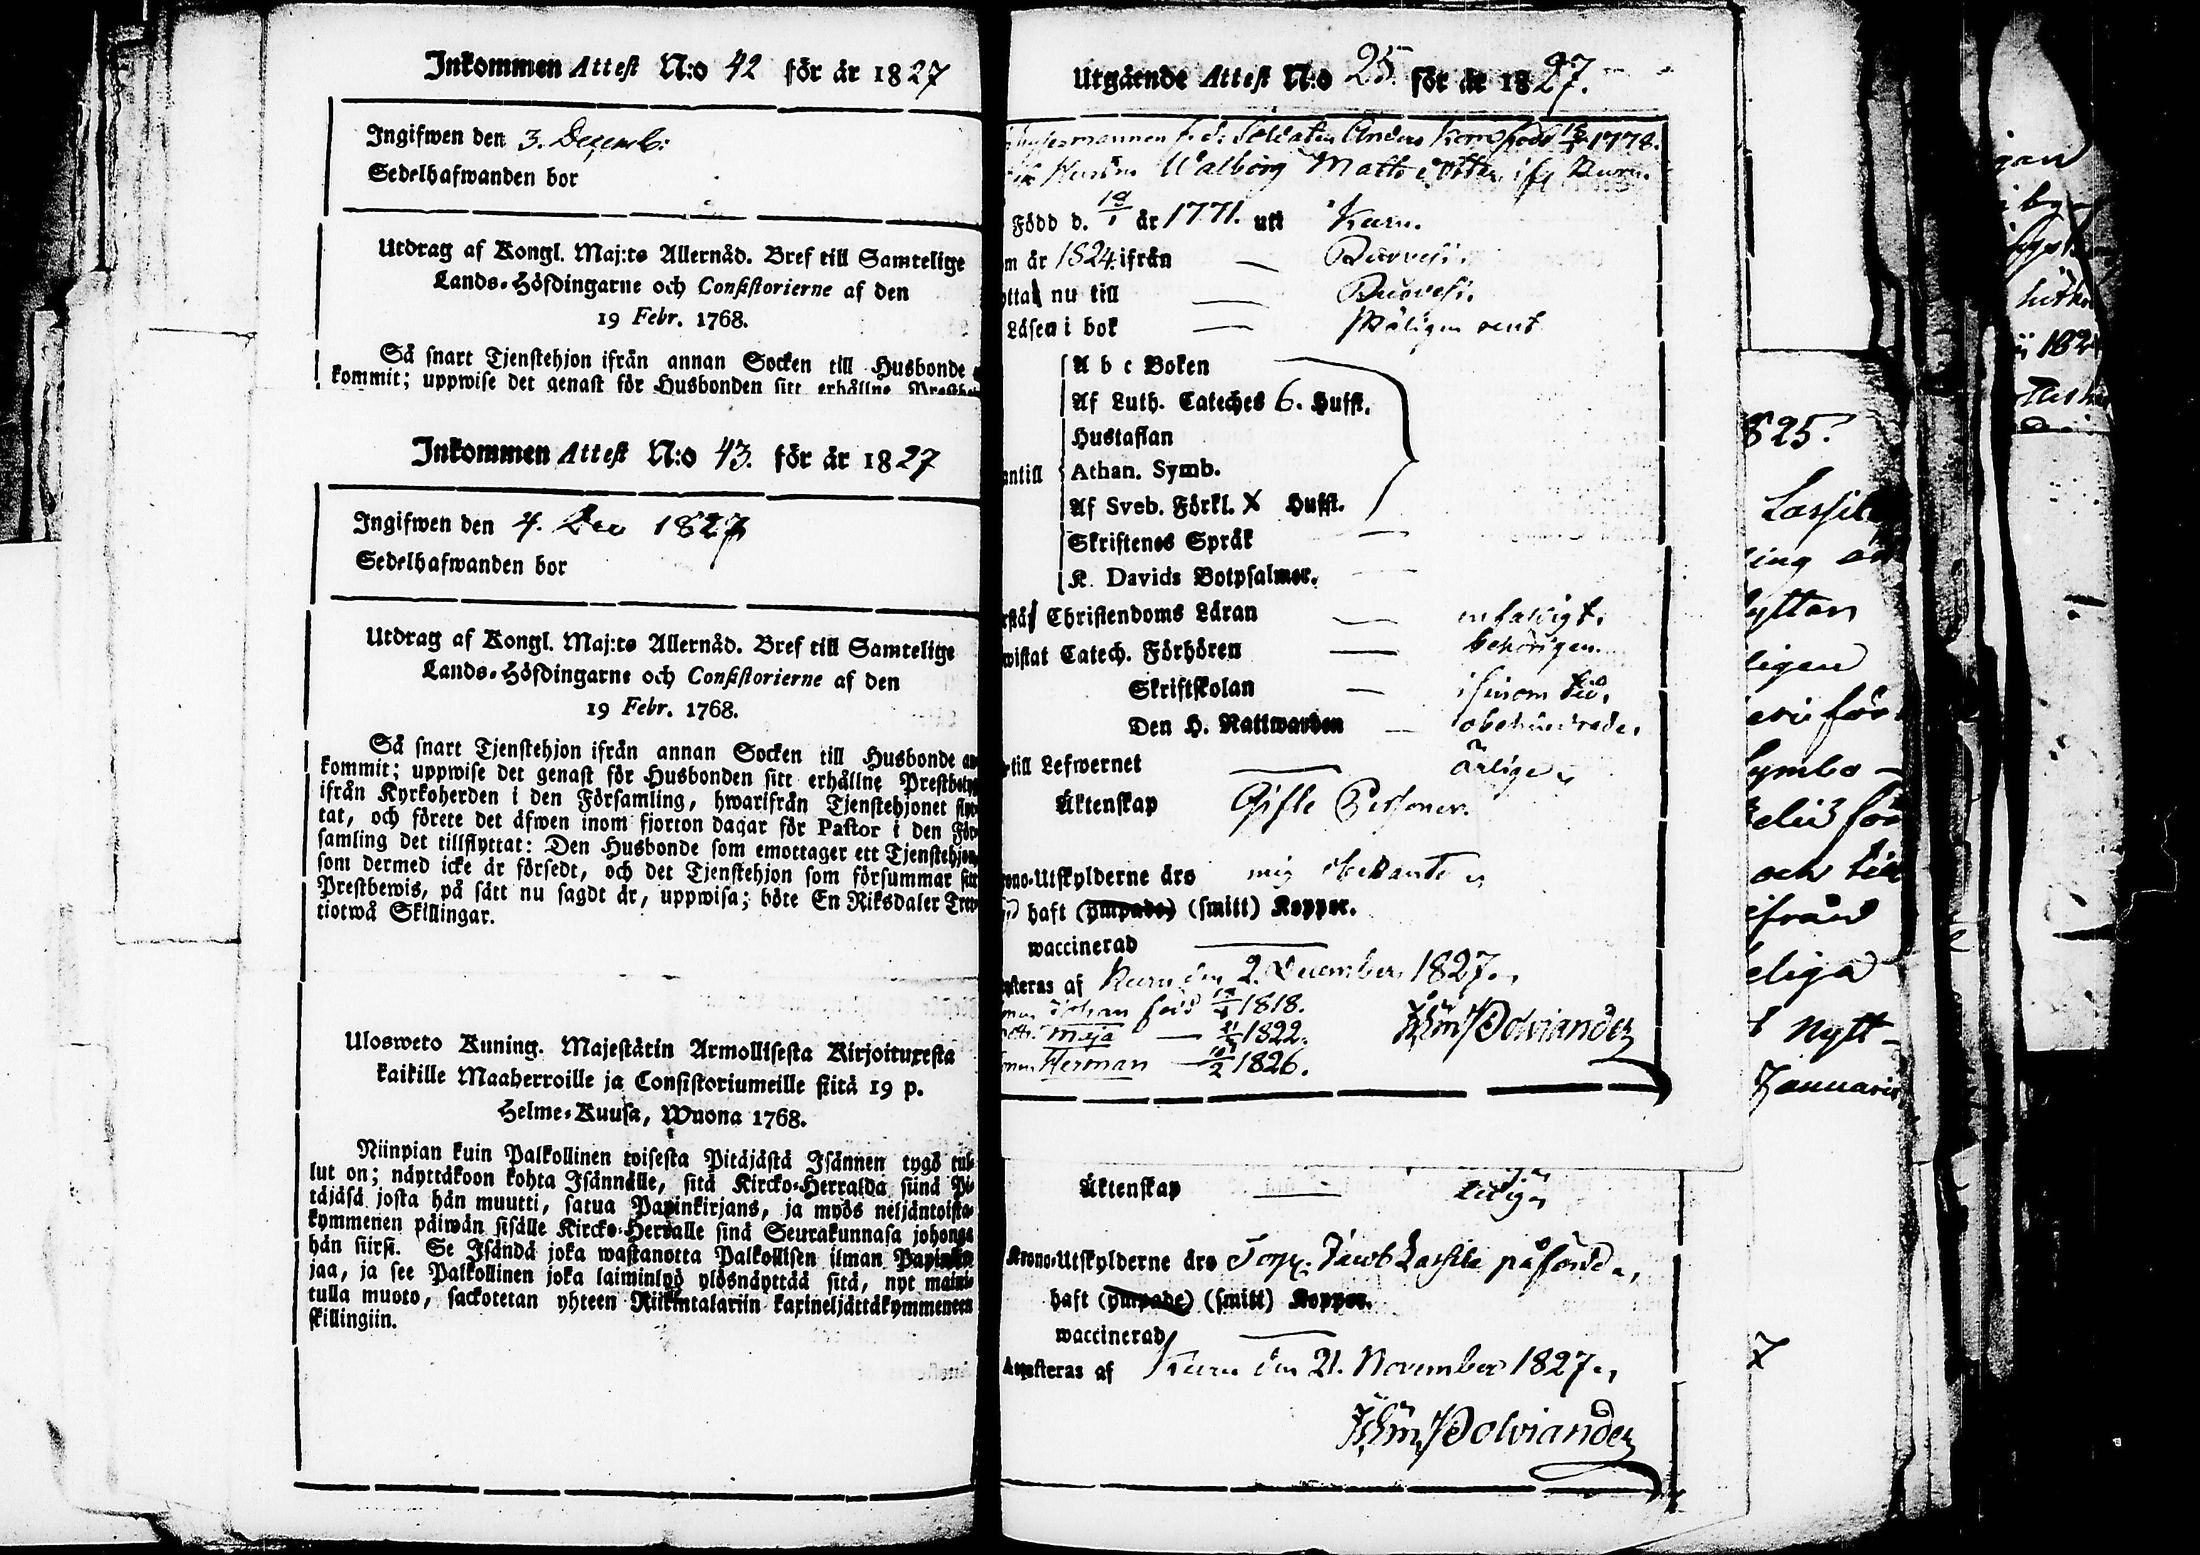 Inkommen Attest N:o 42 för år 1827
Ingifwen den 3. Decemb:
Sedelhafwanden bor
Utdrag af Kongl. Maj:ts Allernåd. Bref till Samtelige
Lands-Höfdingarne och Consistorierne af den
19 Febr. 1768.
Så snart Tjenstehjon ifrån annan Socken till Husbonde
kommit; uppwise det genast för Husbonden sitt erhållne
Inkommen Attest N:o 43. för år 1827
Ingifwen den 4. Dec 1827
Sedelhafwanden bor
Utdrag af Kongl. Maj:ts Allernåd. Bref till Samtelige
Lands-Höfdingarne och Consistorierne af den
19 Febr. 1768.
Så snart Tjenstehjon ifrån annan Socken till Husbonde an
kommit; uppwise det genast för Husbonden sitt erhållne Prestbewis
ifrån Kyrkoherden i den Församling, hwarifrån Tjenstehjonet flyt
tat, och förete det äfwen inom fjorton dagar för Pastor i den För
samling det tillflyttat: Den Husbonde som emottager ett Tjenstehjon,
som dermed icke är försedt, och det Tjenstehjon som försummar sitt
Prestbewis, på sätt nu sagdt är, uppwisa; böte En Riksdaler Tret
tiotwå Skillingar.
Ulosweto Kuning. Majestätin Armollisesta Kirjoituxesta
kaikille Maaherroille ja Consistoriumeille siitä 19 p.
Helme-Kuusa, Wuona 1768.
Niinpian kuin Palkollinen toisesta Pitäjästä Isännen tygö tul-
lut on; näyttäkoon kohta Isännälle, sitä Kircko-Herralda siinä Pi-
täjäsä josta hän muutti, saatua Papinkirjans, ja myös neljäntoista-
kymmenen päiwän sisälle Kircko-Herralle sinä Seurakunnasa johonga
hän siirsi. Se Isändä joka wastanotta Palkollisen ilman Papinkir
jaa, ja see Palkollinen joka laiminlyö ylösnäyttää sitä, nyt maini-
tulla muoto, sackotetan yhteen Riikintalariin kaxineljättäkymmeneen
skillingiin.
Utgående Attest N:o 25. för år 1827.
f. d. Soldaten Anders 1778.
Hustru Walborg Matts dotter ifr
Född d. 18/1 år 1771. uti Kuru.
m år 1824. ifrån — Ruovesi.
nu till — Ruovesi.
Läsen i bok — rent
A b c Boken
Af Luth. Cateches 6. Hufst.
Hustaflan
Athan. Symb.
Af Sveb. Förkl. X Hufst.
Skriftenes Språk —
K. Davids Botpsalmer. —
Christendoms Läran — enfaldigt.
wistat Catech. Förhören — behörigen.
Skriftskolan — i sinom tid.
Den H. Nattwarden — obehindrade.
till Lefwernet — ärlige.
Äktenskap Gifte Personer.
Utskylderne äro mig obekante
haft (ympade) (smitt) Koppor.
waccinerad —
steras af Kuru den 2. December 1827.
Johan född 1818.
Maja — 1822.
Herman — 1826.
Äktenskap — ledig
Krono-Utskylderne äro Torp. Jacob Lassila påförde.
haft (ympade) (smitt) Koppor.
waccinerad —
Attesteras af Kuru den 21. November 1827.
825.
Lassila
ligen
och
ifrån
nytt-
Januarii